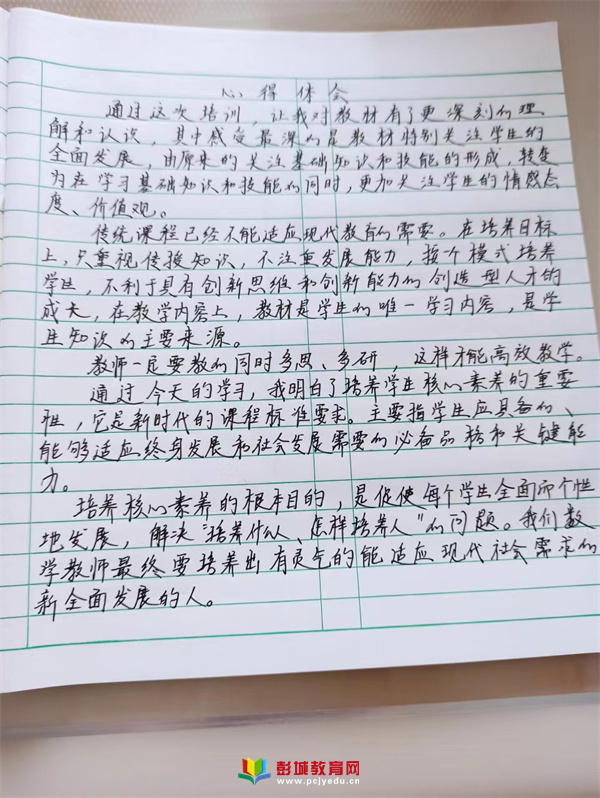 心得体会
通过这次培训，让我对教材有了更深刻的理
解和认识，其中感受最深的是教材特别关注学生的
全面发展，由原来的关注基础知识和技能的形成，转变
为在学习基础知识和技能的同时，更加关注学生的情感态
度、价值观。
传统课程已经不能适应现代教育的需要。在培养目标
上，只重视传授知识，不注重发展能力，按个模式培养
学生，不利于具有创新思维和创新能力的创造型人才的
成长，在教学内容上，教材是学生的唯一学习内容，是学
生知识的主要来源。
教师一定要教的同时多思、多研，这样才能高效教学。
通过今天的学习，我明白了培养学生核心素养的重要
性，它是新时代的课程标准要求。主要指学生应具备的、
能够适应终身发展和社会发展需要的必备品格和关键能
力。
培养核心素养的根本目的，是促使每个学生全面而个性
地发展，解决“培养什么、怎样培养人”的问题。我们数
学教师最终要培养出有灵气的能适应现代社会需求的
新全面发展的人。
彭城教育网
www.pcjyedu.cn